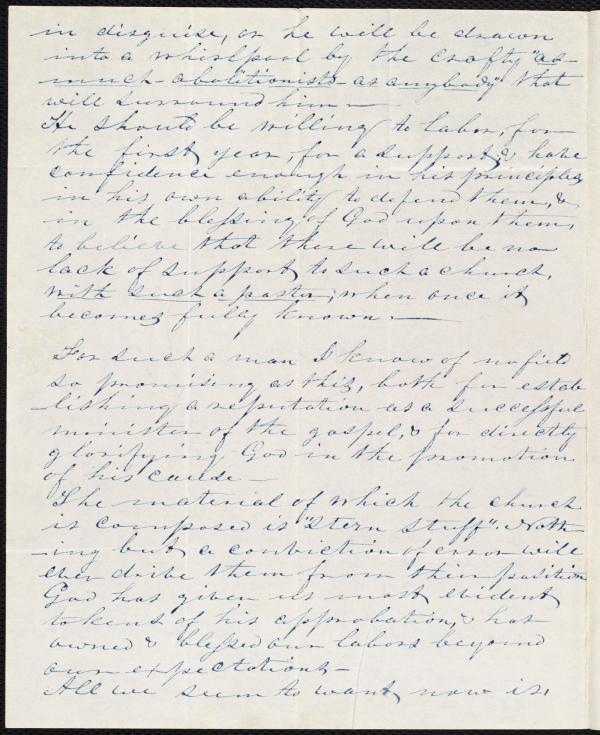 in disguise, or he will be drawn
into a whirlpool by the crafty "as-
much-abolitionists-as anybody" that
will surround him —
He should be willing to labor, for
the first year, for a support, & have
confidence enough in his principles
in his own ability to defend them, &
in the blessing of God upon them,
to believe that there will be no
lack of support to such a church,
with such a pastor, when once it
becomes fully known —
For such a man I know of no field
so promising as this, both for estab
-lishing a reputation as a successful
minister of the gospel, & for directly
glorifying God in the promotion
of his cause —
The material of which the church
is composed is "Stern Stuff". Noth
-ing but a conviction of error will
ever drive them from their position
God has given us most evident
tokens of his approbation, & has
owned & blessed our labors beyond
our expectations —
All we seem to want now is,